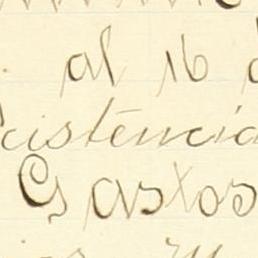 al 16
cistencia
Gastos